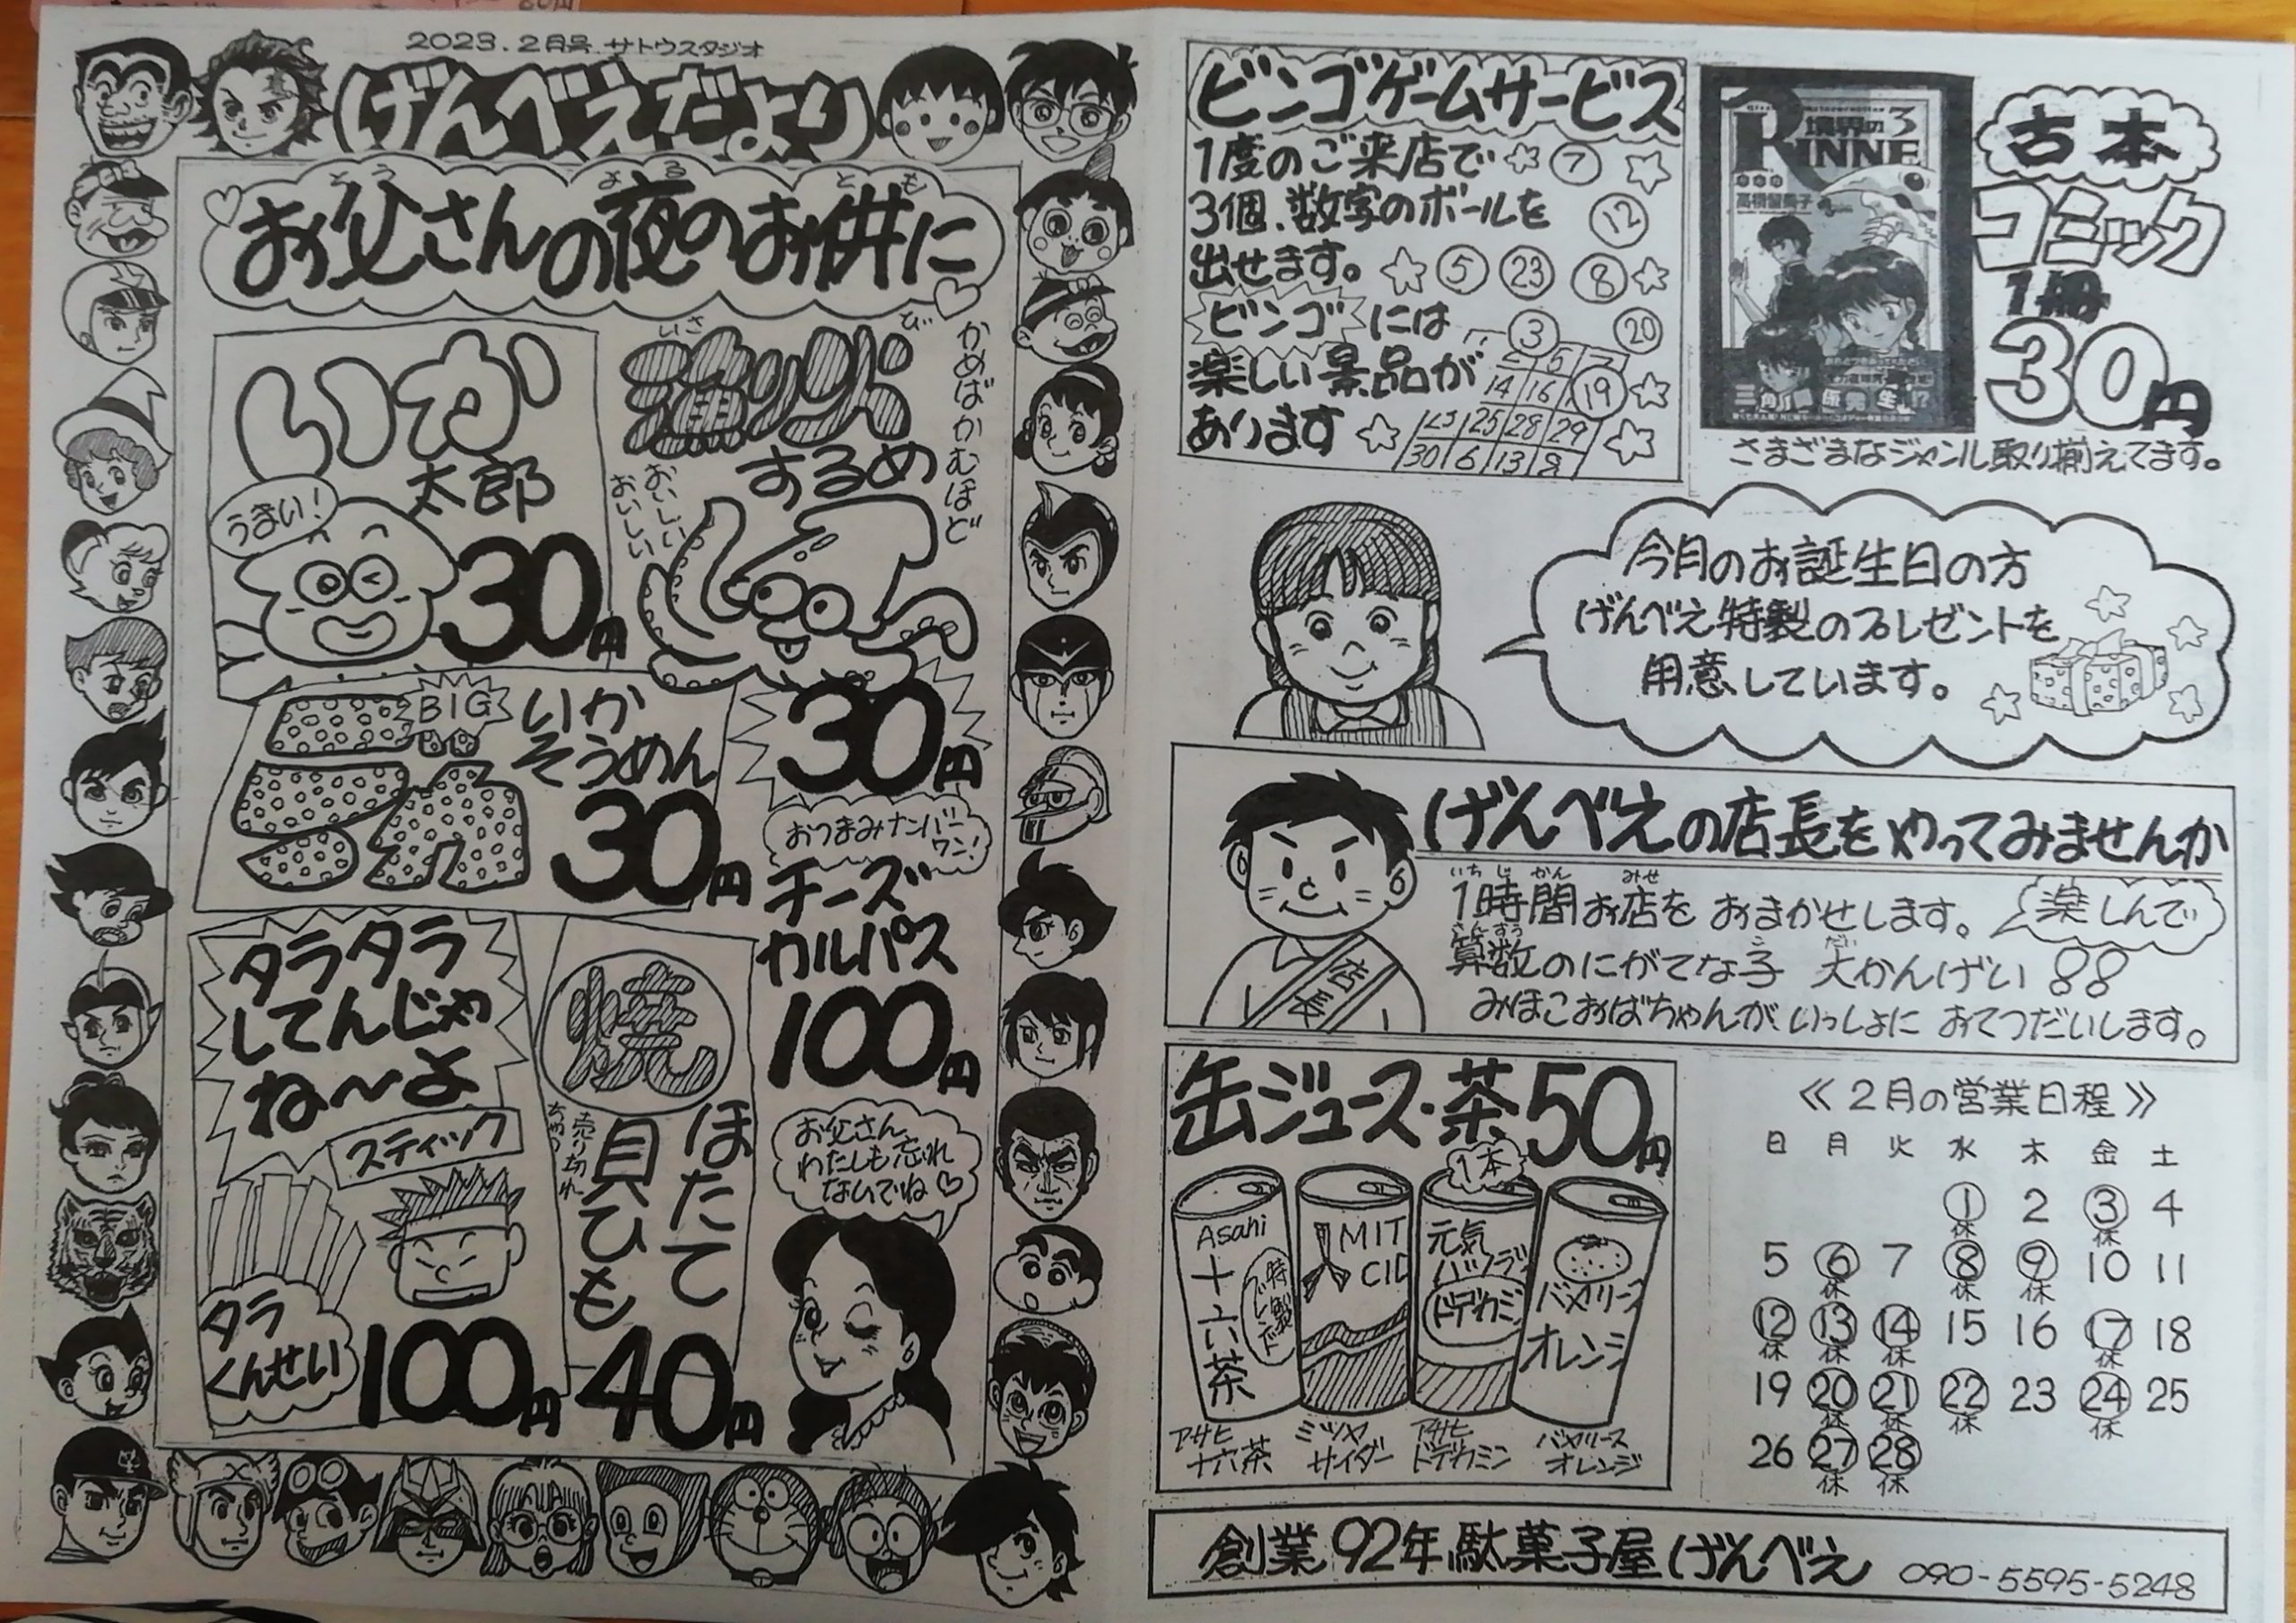 2023.2月号 サトウスタジオ
げんべえだより
お父さんの夜のお供に
とう
よる
とも
いか
太郎
うまい!
30円
いさ
び
漁り火
するめ
かめばかむほど
おいしい
おいしい
30円
BIG
ラーメン
いか
そうめん
30円
おつまみナンバー
ワン!
チーズ
カルパス
100円
タラタラ
してんじゃ
ね〜よ
スティック
タラ
くんせい
100円
焼
ほたて
貝ひも
売り切れ
ちゅう
40円
お父さん
わたしも忘れ
ないでね♡
ビンゴゲームサービス
1度のご来店で
3個、数字のボールを
出せます。
ビンゴには
楽しい景品が
あります
7
12
5 23 8
3 20
14 16 19
25 28 29
30 6 13 8
境界の 3
RINNE
高橋留美子
三角関係発生!?
古本
コミック
1冊
30円
さまざまなジャンル取り揃えてます。
今月のお誕生日の方
げんべえ特製のプレゼントを
用意しています。
げんべえの店長をやってみませんか
いちじかん みせ
1時間お店をおまかせします。
楽しんで
さんすう こ だい
算数のにがてな子 大かんげい!!
みほこおばちゃんが、いっしょに おてつだいします。
店長
缶ジュース・茶50円
1本
Asahi
十六茶
特製ブレンド
MIT
CID
元気
ハツラツ
ドデカミン
バヤリース
オレンジ
アサヒ
十六茶
ミツヤ
サイダー
アサヒ
ドデカミン
バヤリース
オレンジ
≪2月の営業日程≫
日 月 火 水 木 金 土
1 2 3 4
休 休
5 6 7 8 9 10 11
休 休 休
12 13 14 15 16 17 18
休 休 休 休
19 20 21 22 23 24 25
休 休 休 休
26 27 28
休 休
創業92年駄菓子屋げんべえ 090-5595-5248